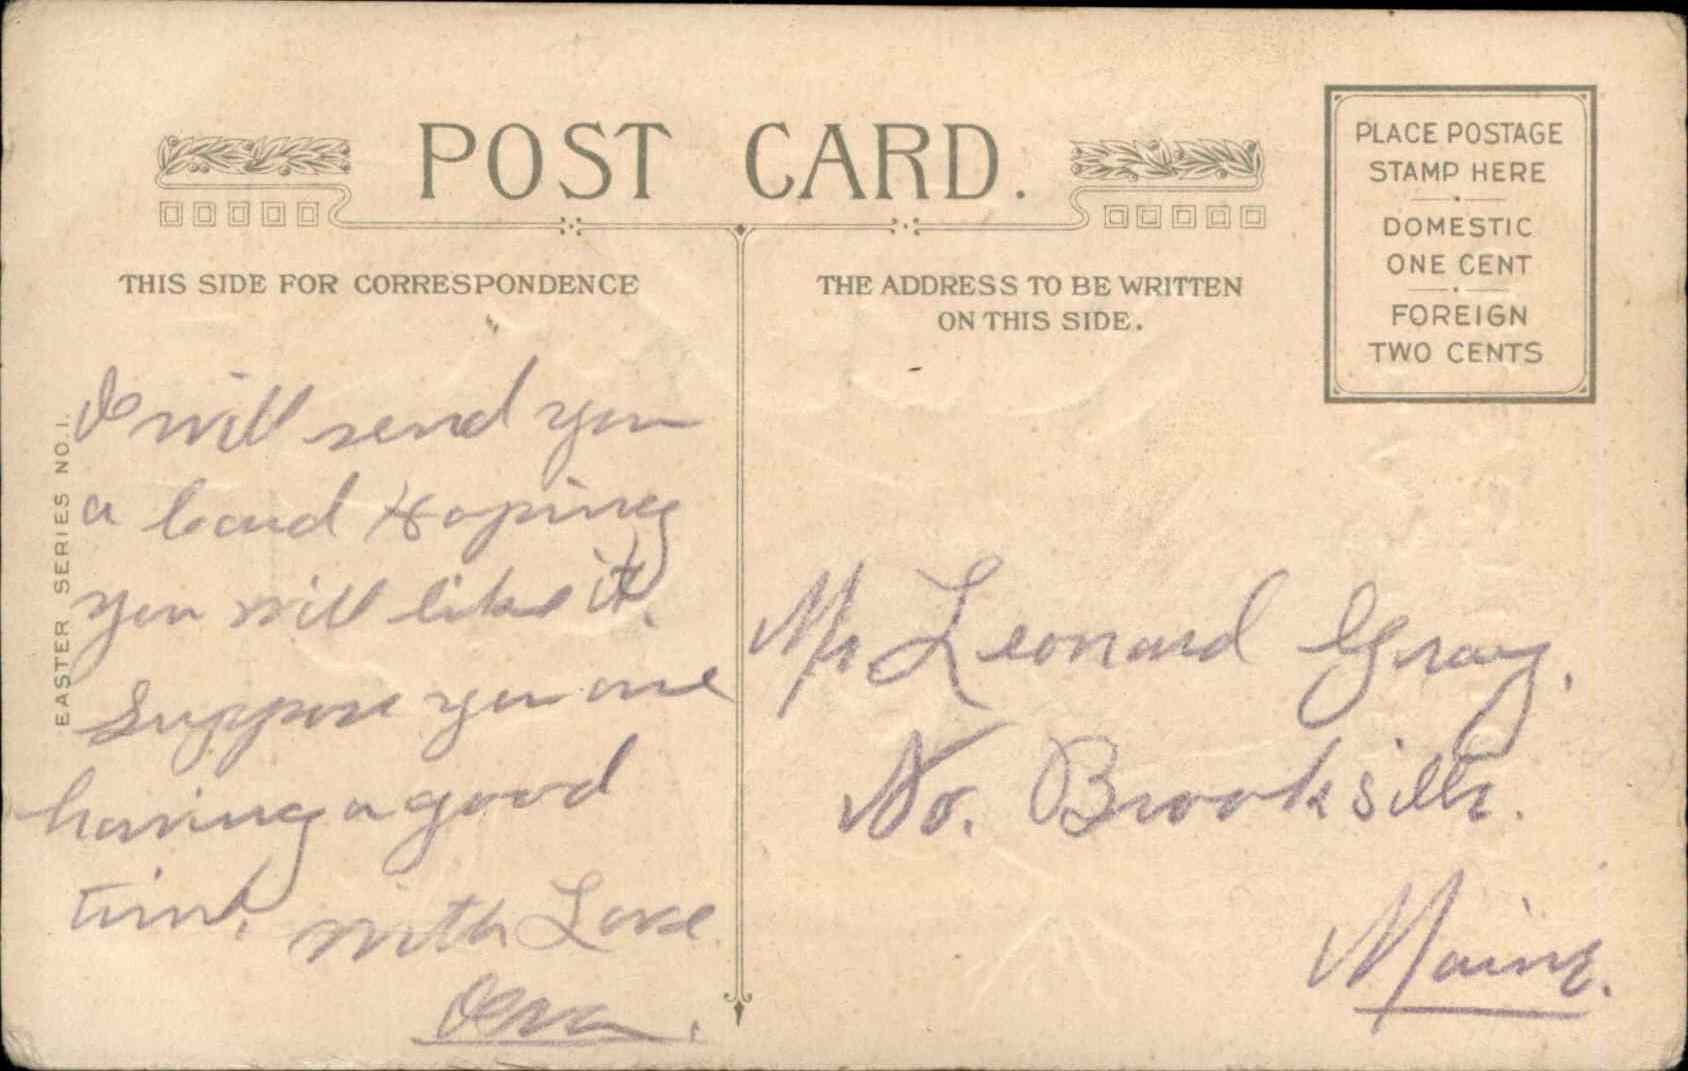 POST CARD.
THIS SIDE FOR CORRESPONDENCE
THE ADDRESS TO BE WRITTEN
ON THIS SIDE.
PLACE POSTAGE
STAMP HERE
DOMESTIC
ONE CENT
FOREIGN
TWO CENTS
EASTER SERIES NO. 1.
I will send you
a card Hoping
you will like it.
Suppose you are
having a good
time. With Love
Mr Leonard Gray.
No. Brooksille.
Maine.